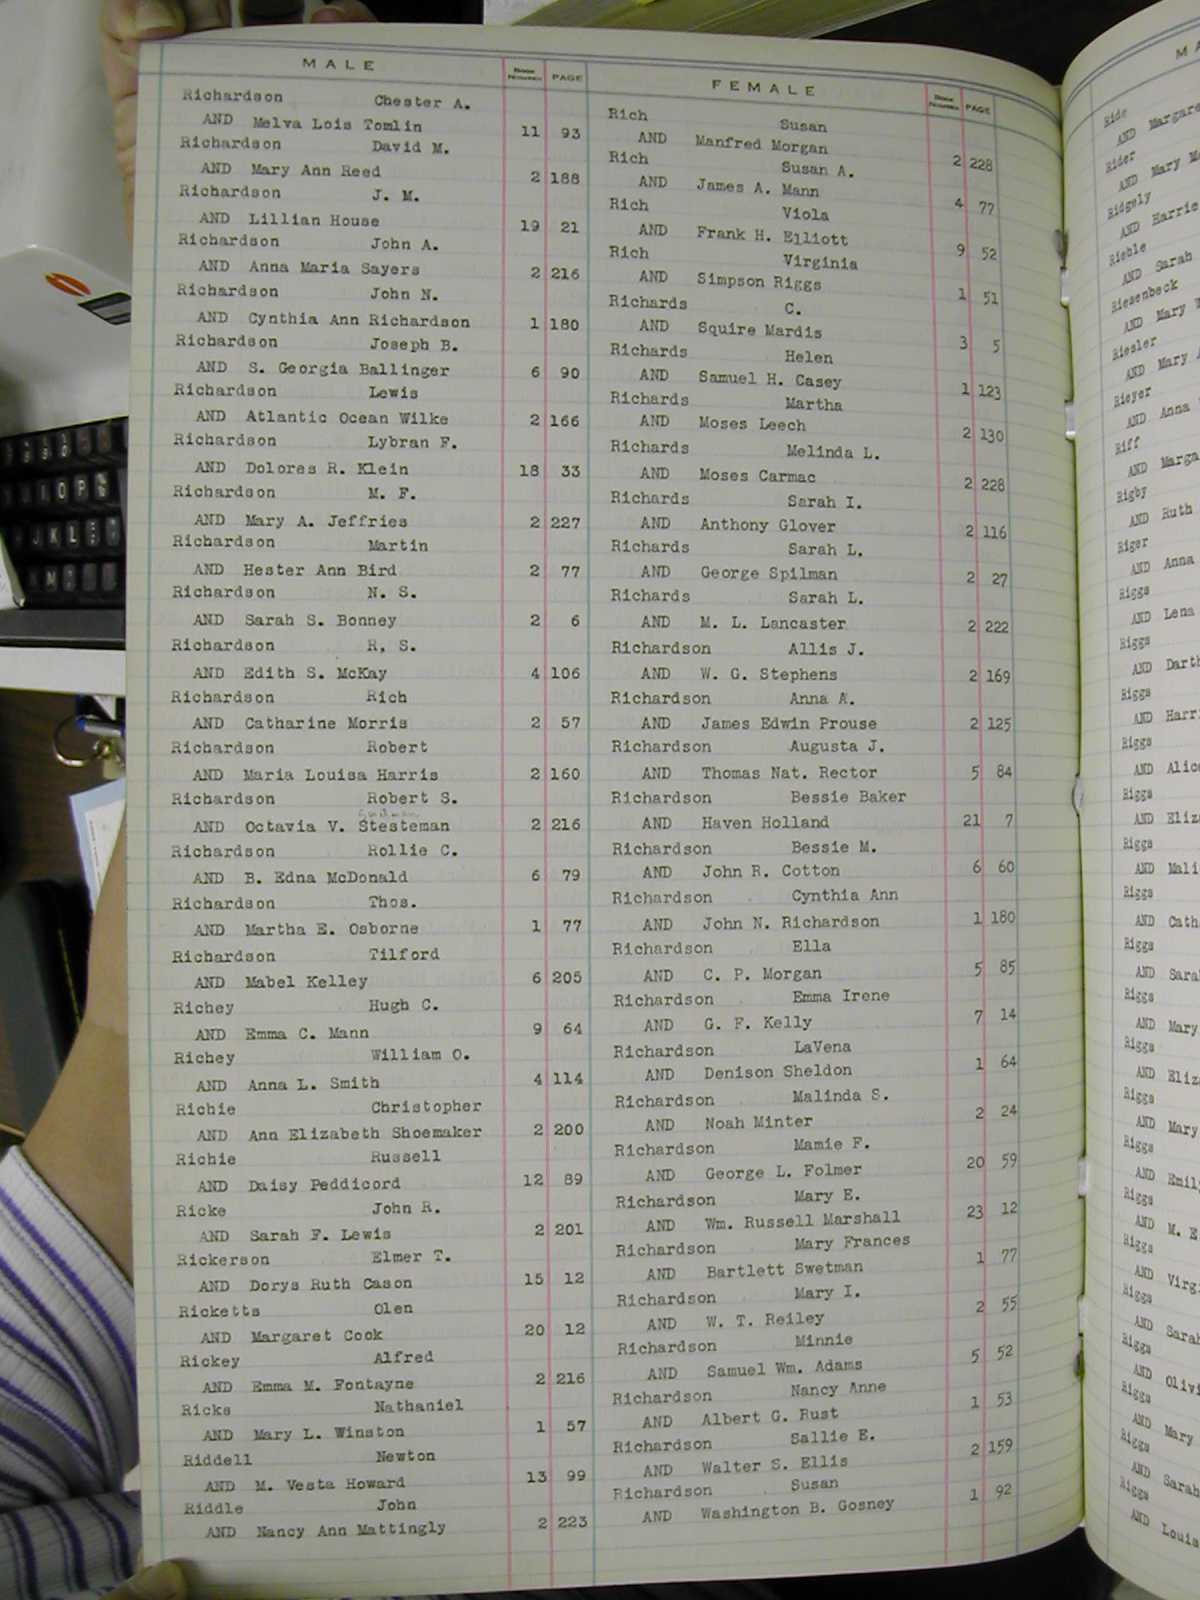 MALE BOOK NUMBER PAGE
Richardson Chester A.
AND Melva Lois Tomlin 11 93
Richardson David M.
AND Mary Ann Reed 2 188
Richardson J. M.
AND Lillian House 19 21
Richardson John A.
AND Anna Maria Sayers 2 216
Richardson John N.
AND Cynthia Ann Richardson 1 180
Richardson Joseph B.
AND S. Georgia Ballinger 6 90
Richardson Lewis
AND Atlantic Ocean Wilke 2 166
Richardson Lybran F.
AND Dolores R. Klein 18 33
Richardson M. F.
AND Mary A. Jeffries 2 227
Richardson Martin
AND Hester Ann Bird 2 77
Richardson N. S.
AND Sarah S. Bonney 2 6
Richardson R, S.
AND Edith S. McKay 4 106
Richardson Rich
AND Catharine Morris 2 57
Richardson Robert
AND Maria Louisa Harris 2 160
Richardson Robert S.
AND Octavia V. Stesteman 2 216
Richardson Rollie C.
AND B. Edna McDonald 6 79
Richardson Thos.
AND Martha E. Osborne 1 77
Richardson Tilford
AND Mabel Kelley 6 205
Richey Hugh C.
AND Emma C. Mann 9 64
Richey William O.
AND Anna L. Smith 4 114
Richie Christopher
AND Ann Elizabeth Shoemaker 2 200
Richie Russell
AND Daisy Peddicord 12 89
Ricke John R.
AND Sarah F. Lewis 2 201
Rickerson Elmer T.
AND Dorys Ruth Cason 15 12
Ricketts Olen
AND Margaret Cook 20 12
Rickey Alfred
AND Emma M. Fontayne 2 216
Ricks Nathaniel
AND Mary L. Winston 1 57
Riddell Newton
AND M. Vesta Howard 13 99
Riddle John
AND Nancy Ann Mattingly 2 223
FEMALE BOOK NUMBER PAGE
Rich Susan
AND Manfred Morgan 2 228
Rich Susan A.
AND James A. Mann 4 77
Rich Viola
AND Frank H. Elliott 9 52
Rich Virginia
AND Simpson Riggs 1 51
Richards C.
AND Squire Mardis 3 5
Richards Helen
AND Samuel H. Casey 1 123
Richards Martha
AND Moses Leech 2 130
Richards Melinda L.
AND Moses Carmac 2 228
Richards Sarah I.
AND Anthony Glover 2 116
Richards Sarah L.
AND George Spilman 2 27
Richards Sarah L.
AND M. L. Lancaster 2 222
Richardson Allis J.
AND W. G. Stephens 2 169
Richardson Anna A.
AND James Edwin Prouse 2 125
Richardson Augusta J.
AND Thomas Nat. Rector 5 84
Richardson Bessie Baker
AND Haven Holland 21 7
Richardson Bessie M.
AND John R. Cotton 6 60
Richardson Cynthia Ann
AND John N. Richardson 1 180
Richardson Ella
AND C. P. Morgan 5 85
Richardson Emma Irene
AND G. F. Kelly 7 14
Richardson LaVena
AND Denison Sheldon 1 64
Richardson Malinda S.
AND Noah Minter 2 24
Richardson Mamie F.
AND George L. Folmer 20 59
Richardson Mary E.
AND Wm. Russell Marshall 23 12
Richardson Mary Frances
AND Bartlett Swetman 1 77
Richardson Mary I.
AND W. T. Reiley 2 55
Richardson Minnie
AND Samuel Wm. Adams 5 52
Richardson Nancy Anne
AND Albert G. Rust 1 53
Richardson Sallie E.
AND Walter S. Ellis 2 159
Richardson Susan
AND Washington B. Gosney 1 92
MA
Ride
AND Margare
Rider
AND Mary M
Ridgely
AND Harrie
Rieble
AND Sarah
Riesenbeck
AND Mary W
Riesler
AND Mary
Rieyer
AND Anna
Riff
AND Marga
Rigby
AND Ruth
Riger
AND Anna
Riggs
AND Lena
Riggs
AND Darth
Riggs
AND Harri
Riggs
AND Alice
Riggs
AND Eliz
Riggs
AND Mali
Riggs
AND Cath
Riggs
AND Sara
Riggs
AND Mary
Riggs
AND Eliz
Riggs
AND Mary
Riggs
AND Emily
Riggs
AND M. E
Riggs
AND Virg
Riggs
AND Sarah
Riggs
AND Olivi
Riggs
AND Mary
Riggs
AND Sarah
Riggs
AND Louis